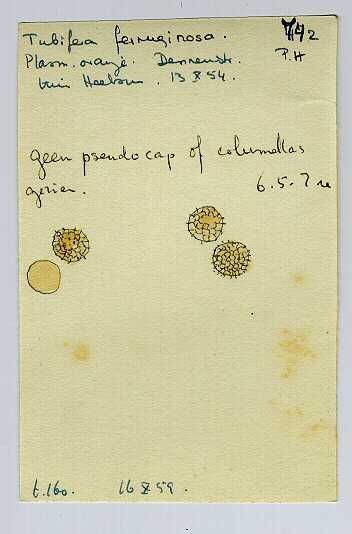 Tubifera ferruginosa.
742
Plasm. orange. Dennenstr.
P.H
tuin 13 X 54.
geen pseudocap of columellas
gezien.
6.5-7 u
t.160. 16 X 59.